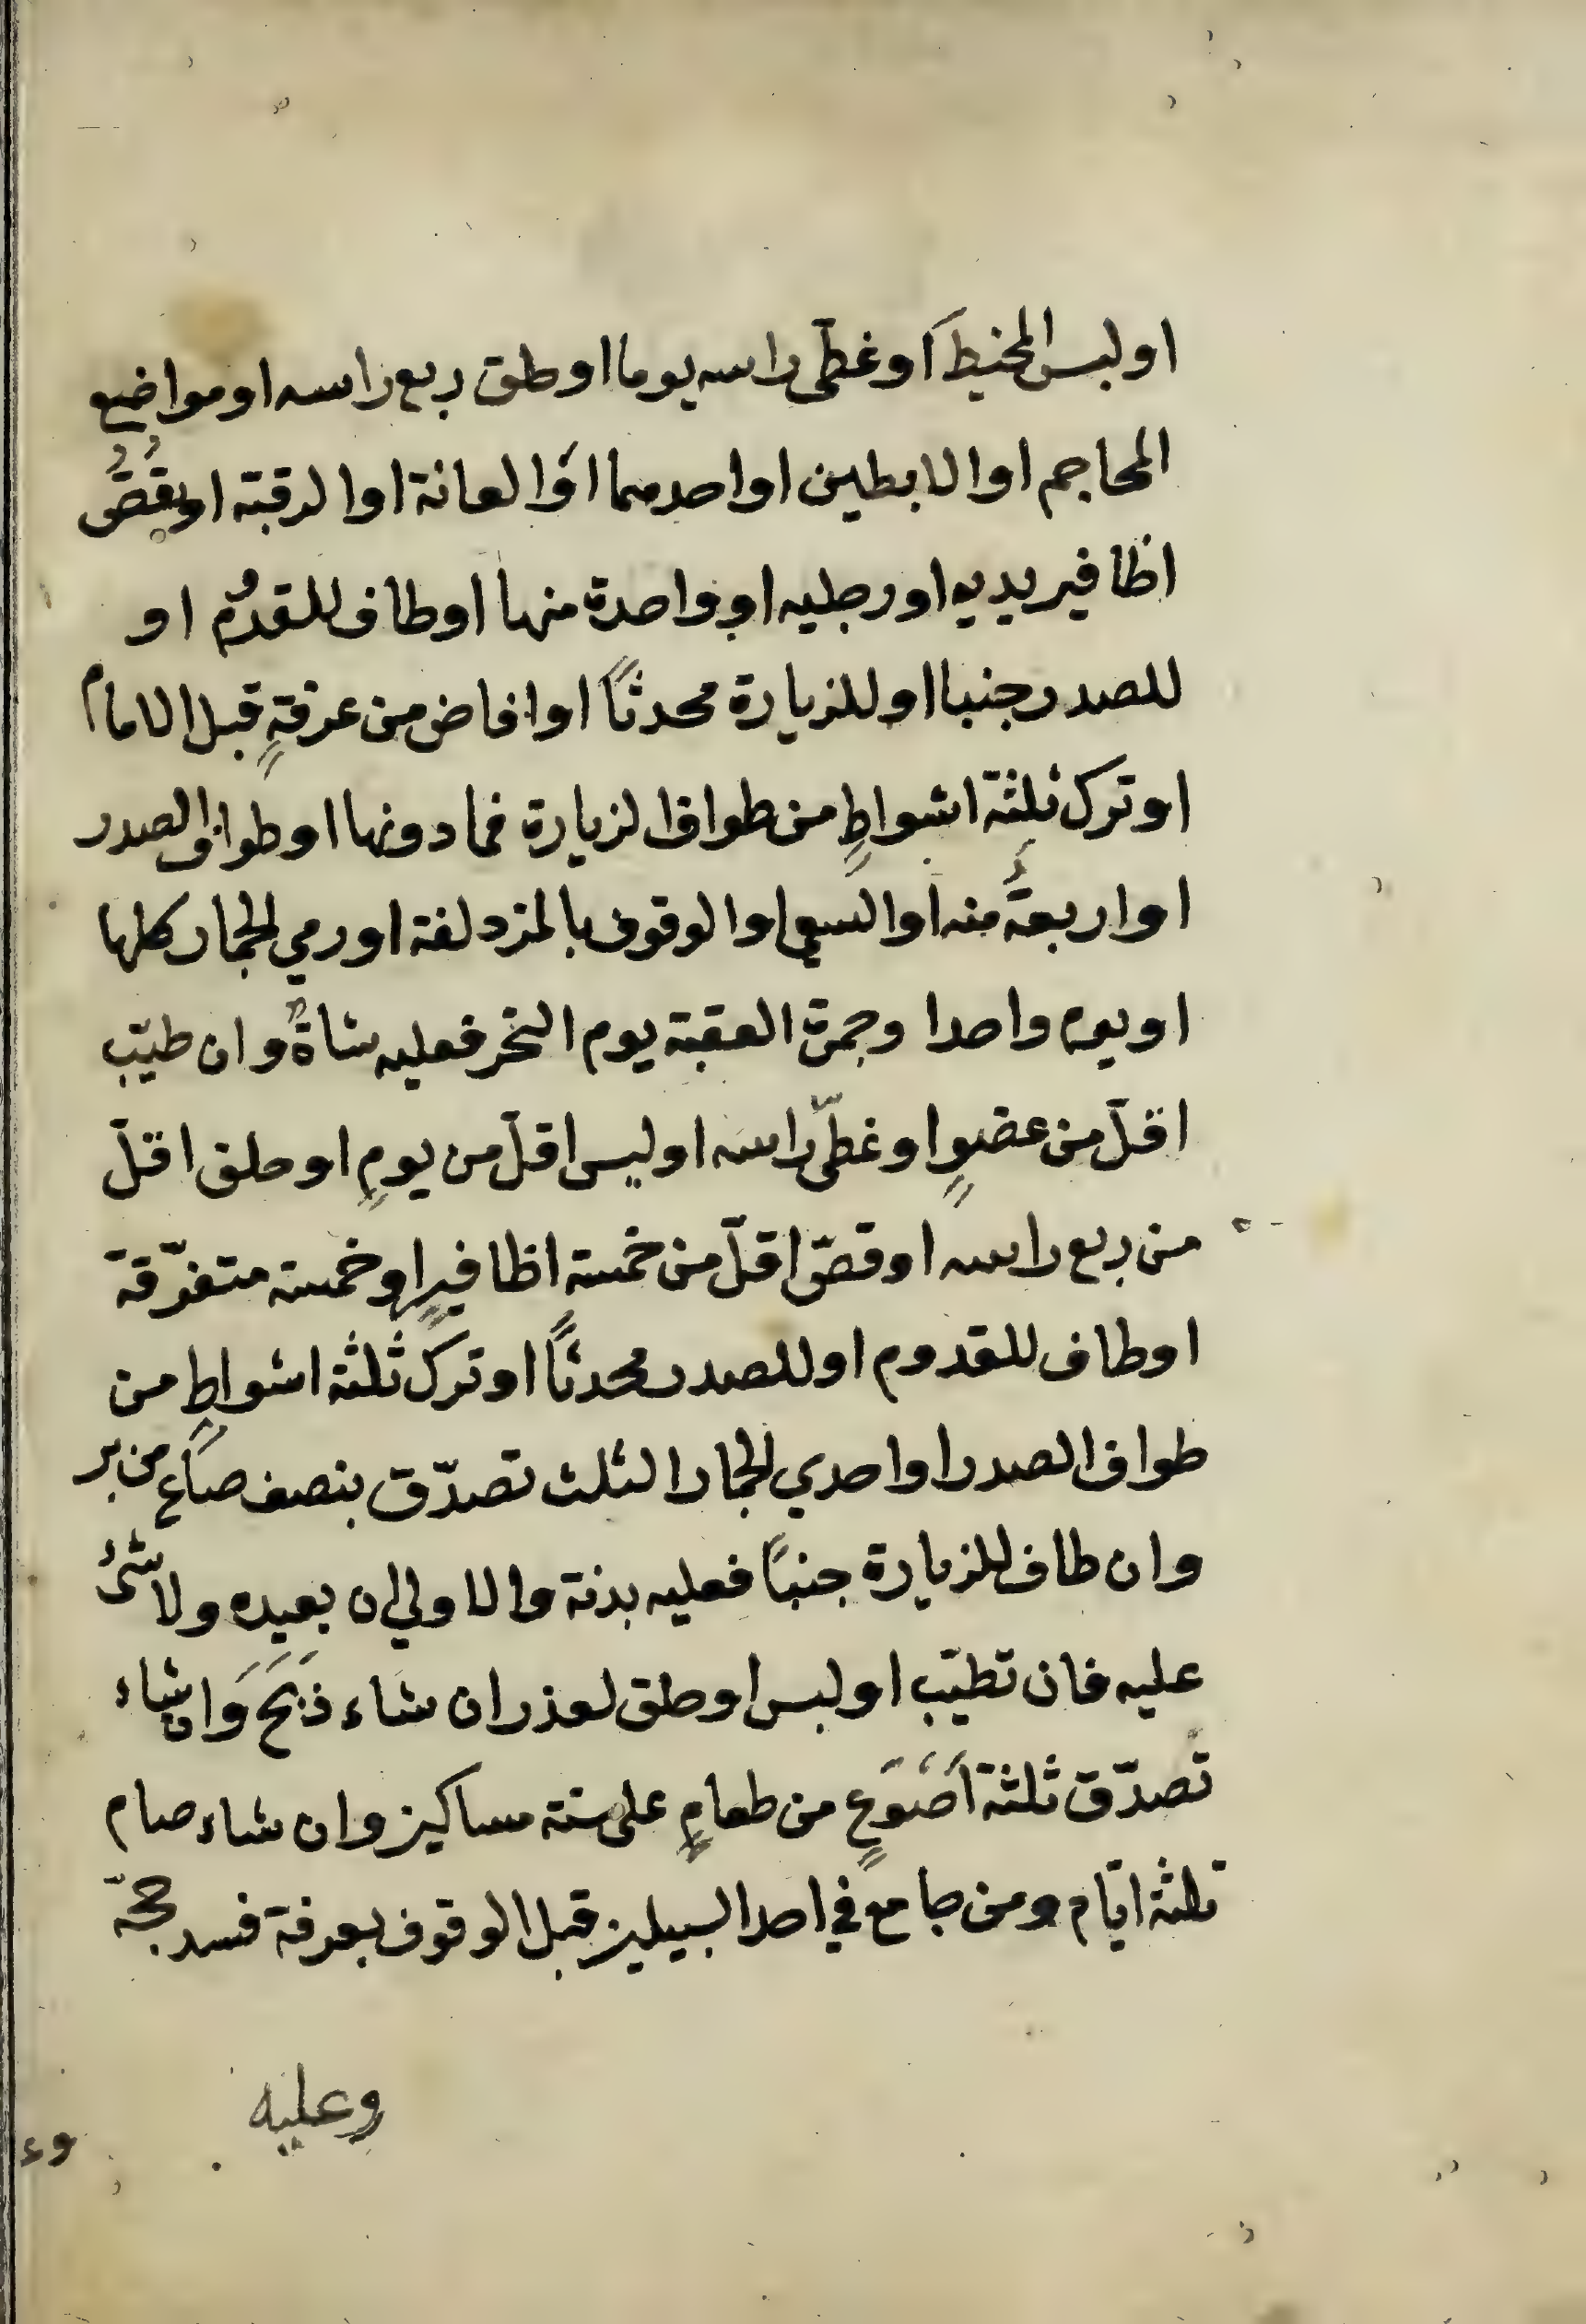 او لبس المخيط او غطى راسه يوما او حلق ربع راسه او مواضع
المحاجم او الابطين او احدهما او العانة او الرقبة او يقُصُّ
اظافير يديه او رجليه او واحدة منها او طاف للقدُم او
للصدر جنبا او للزيارة محدثًا او افاض من عرفةٍ قبل الامام
او ترك ثلثة اشواطٍ من طواف الزيارة فما دونها او طواف الصدر
او اربعةً منه او السعي او الوقوف بالمزدلفة او رمي الجمار كلها
او يوم واحدا وجمرة العقبة يوم النحر فعليه شاةٌ وان طيّب
اقلّ من عضوٍ او غطّى راسه او لبس اقلّ من يومٍ او حلق اقلّ
من ربع راسه او قصّ اقلّ من خمسة اظافيرٍ او خمسة متفرّقة
او طاف للقدوم او للصدر محدثًا او ترك ثلثة اشواطٍ من
طواف الصدر او احدي الجمار الثلث تصدّق بنصف صاع من بر
وان طاف للزيارة جنبًا فعليه بدنة والاولي ان يعيده ولا شئُ
عليه فان تطيّب او لبس او حلق لعذر ان شاء ذَبَحَ وَان شاء
تصدّق ثلثة اَصْوَعٍ من طعامٍ على ستة مساكين وان شاء صام
ثلثة ايّام ومن جامع في احد السبيلين قبل الوقوف بعرفة فسد حجّه
وعليه